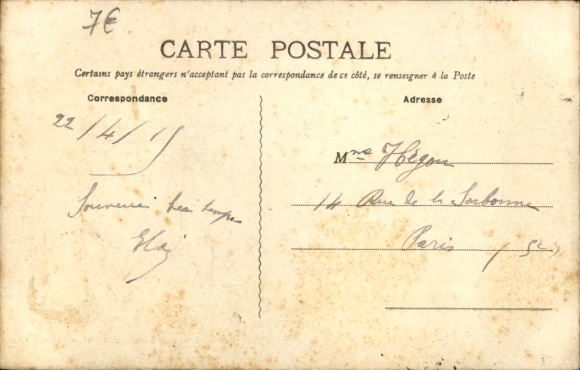 7€
CARTE POSTALE
Certains pays étrangers n'acceptant pas la correspondance de ce côté, se renseigner à la Poste
Correspondance
Adresse
22/4/15
Souvenir
Mme Hégou
14 Rue de la Sorbonne
Paris